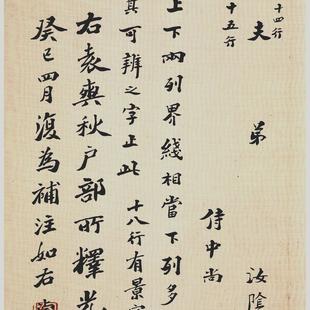 十四行
夫　弟　汝陰
十五行
侍中尚
上下兩列界綫相當下列多
其可辨之字止此　十八行有景
右袁爽秋户部所釋光
癸巳四月復為補注如右